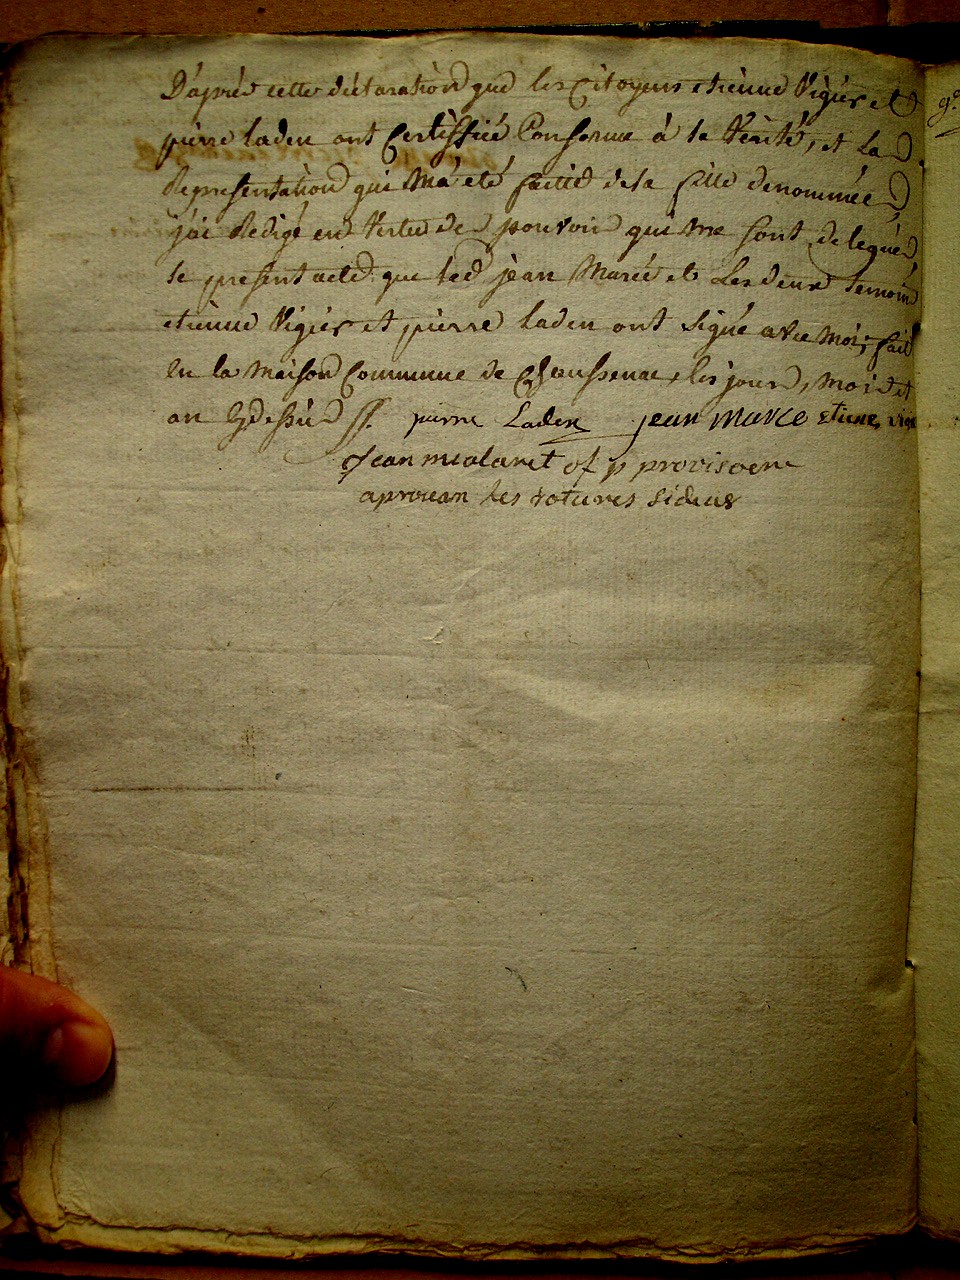 D'aprés cette déclaration que les Citoyens etienne Vigier et
pierre laden ont Certiffié Conforme á la Vérité, et La
Representation qui M'a eté faitte de la fille denommée
j'ai Redigé en Vertu des pouvoir qui me sont delegués
le present acte que led jean Marcé et Les deux temoins
etienne Vigier et pierre laden ont signé avec moi, fait
En la maison Commune de Chaussenac, les jour, mois et
an Cydessus pierre Laden jean marce Etiene vigi
Jean mialaret of p provisoere
aprovan les roturés sideus